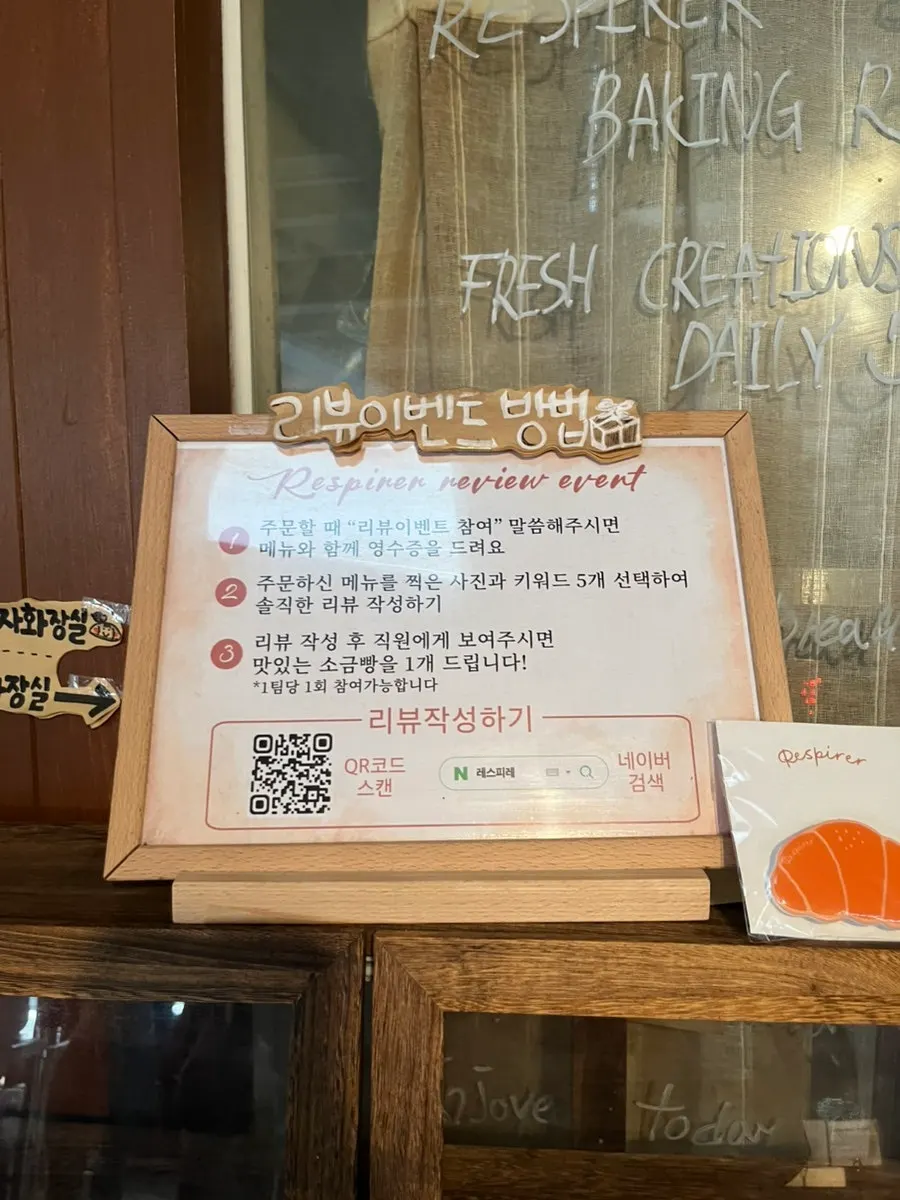 RESPIRER
BAKING
FRESH CREATIONS
DAILY
리뷰이벤트 방법
Respirer review event
1 주문할 때 “리뷰이벤트 참여” 말씀해주시면
메뉴와 함께 영수증을 드려요
2 주문하신 메뉴를 찍은 사진과 키워드 5개 선택하여
솔직한 리뷰 작성하기
3 리뷰 작성 후 직원에게 보여주시면
맛있는 소금빵을 1개 드립니다!
*1팀당 1회 참여가능합니다
리뷰작성하기
QR코드
스캔
N 레스피레
네이버
검색
자화장실
장실
Respirer
love
today